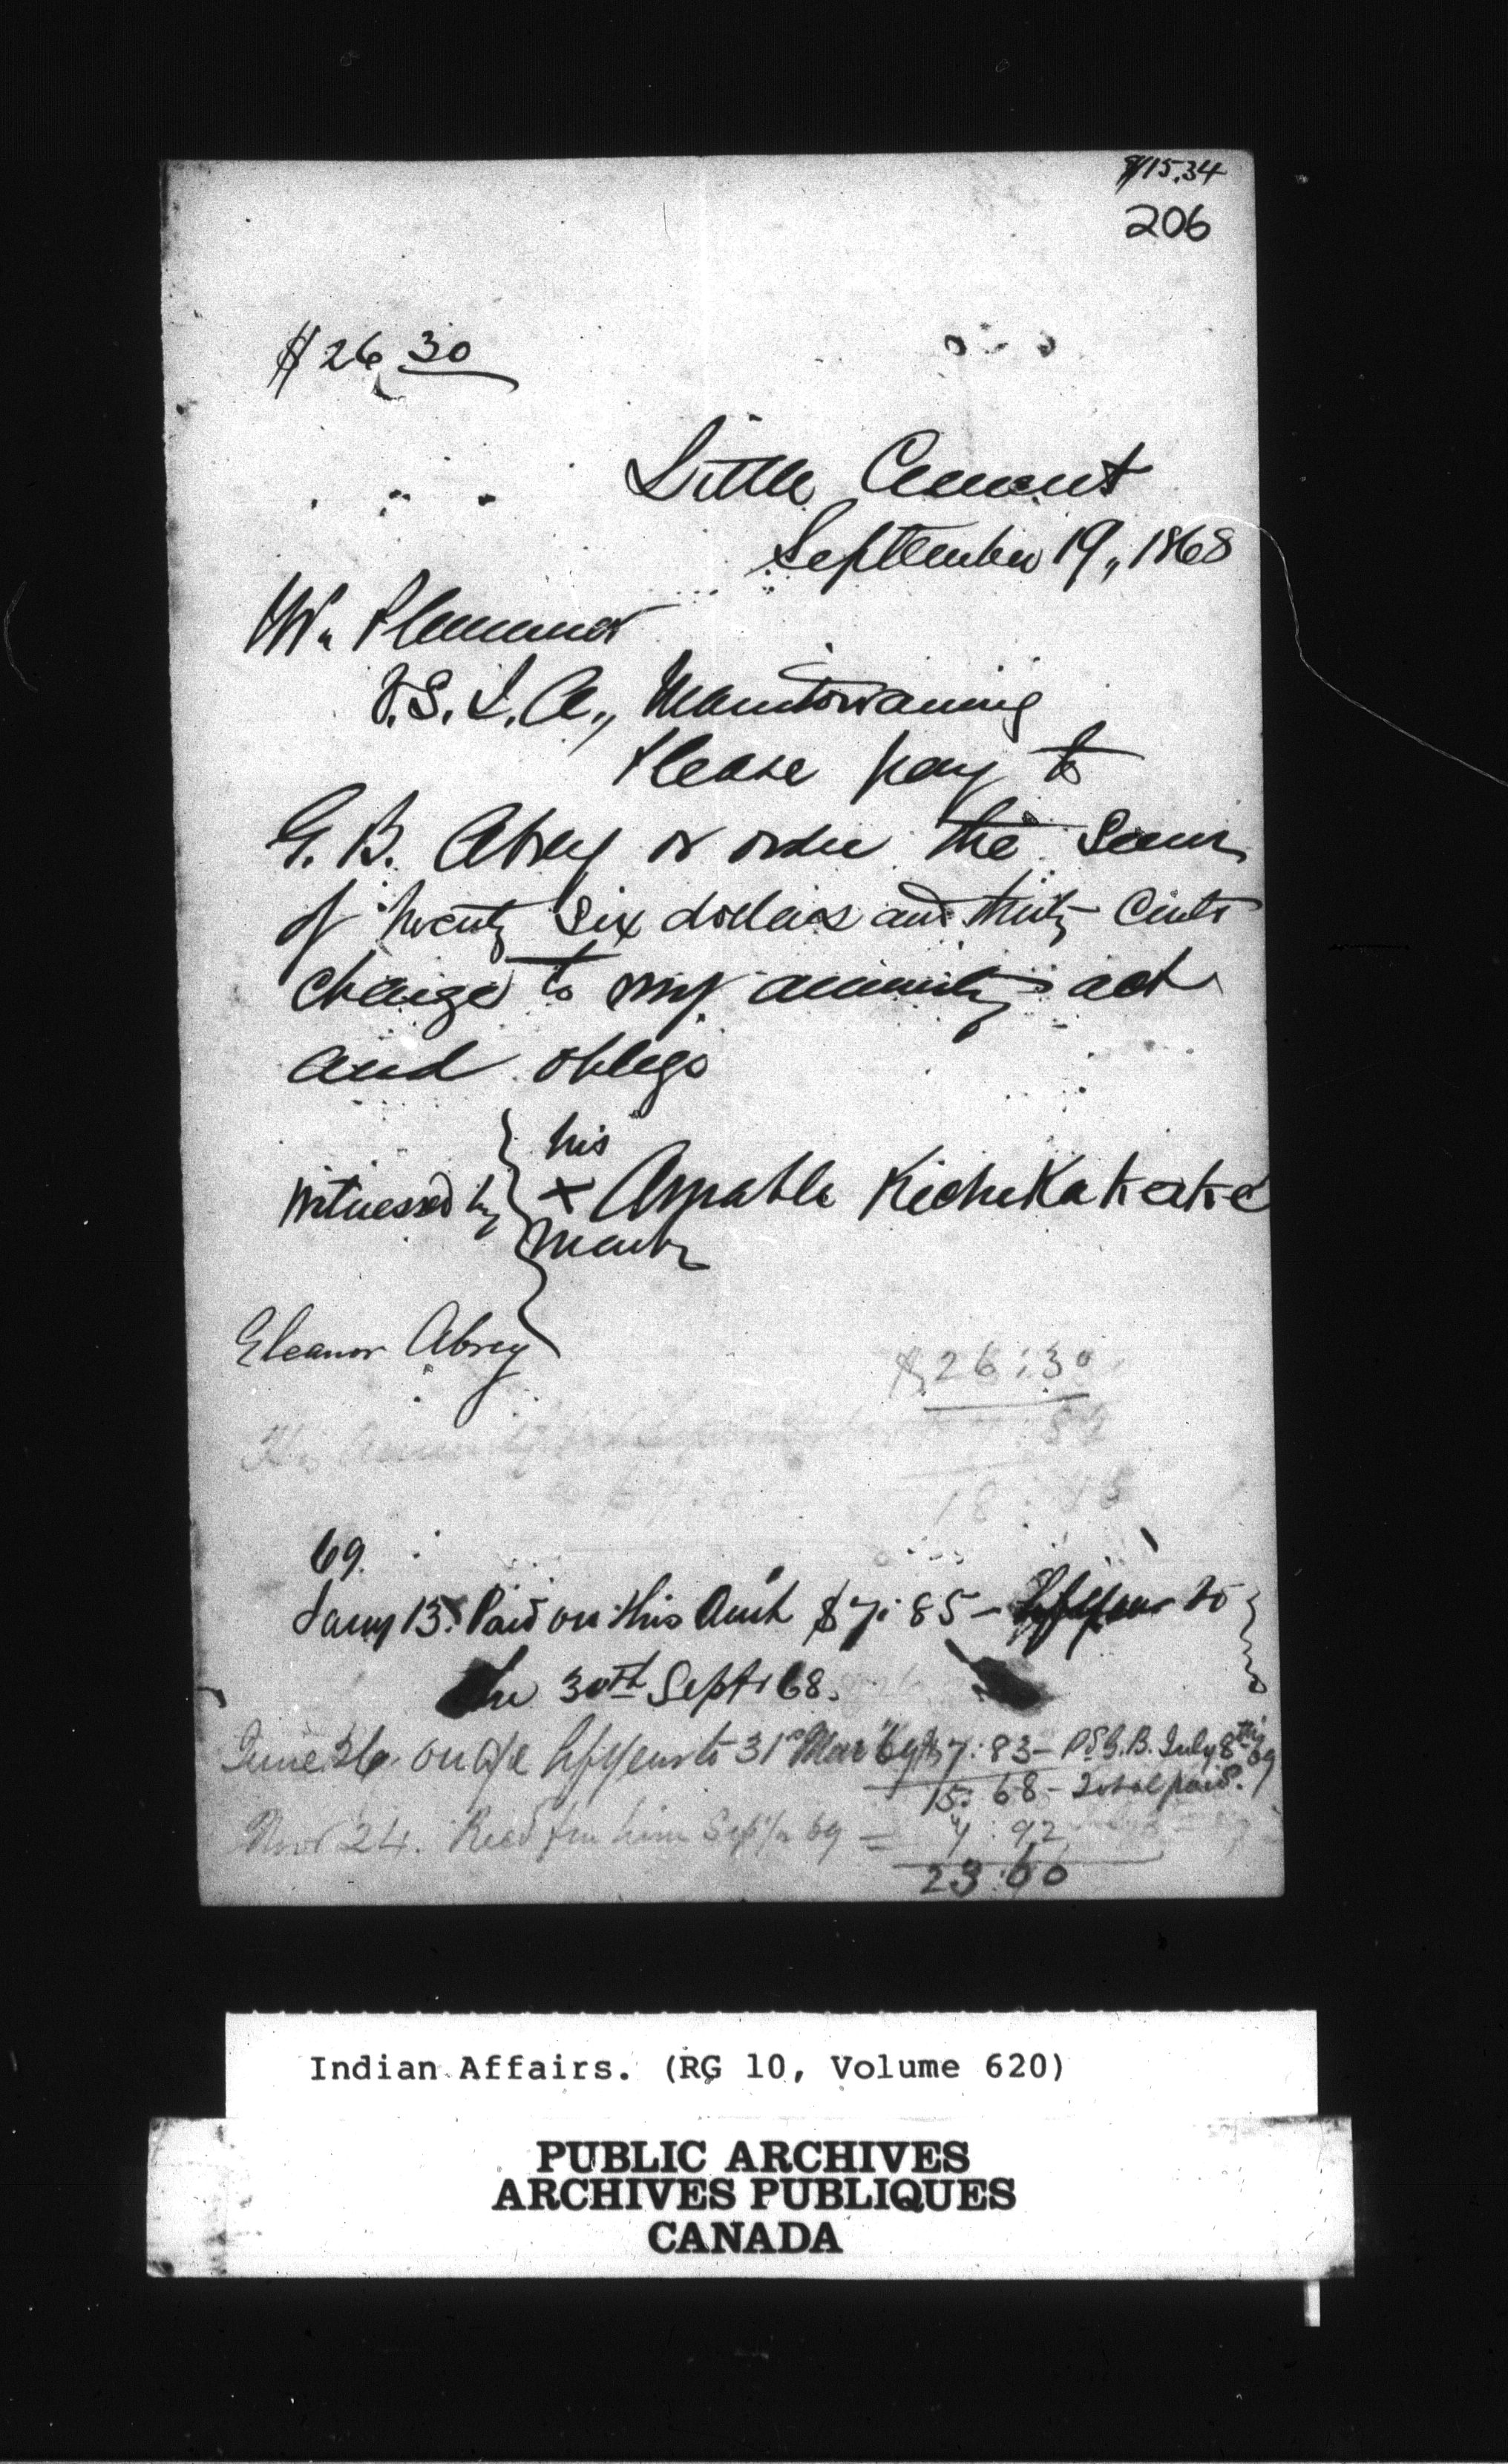 $15.34
206
$26 30
Little Current
September 19,, 1868
Wm Plummer
V.S.I.A., Manitowaning
Please pay to
G. B. Abrey or order the sum
of twenty six dollars and thirty cents
charge to my annuity act
and oblige
his
witnessed by x Amable KicheKakeke
mark
Eleanor Abrey
$26:30
18:45
69.
Jany 13. Paid on this Amt $7:85 – to
the 30th Sept 68.
June 26. on a/c hf years to 31st Mar 69 $7:83 – Pd G.B. July 8th 69
15:68 – Total paid.
Novr 24. Recd fm him Sept 69 = 7:92
23:60
Indian Affairs. (RG 10, Volume 620)
PUBLIC ARCHIVES
ARCHIVES PUBLIQUES
CANADA